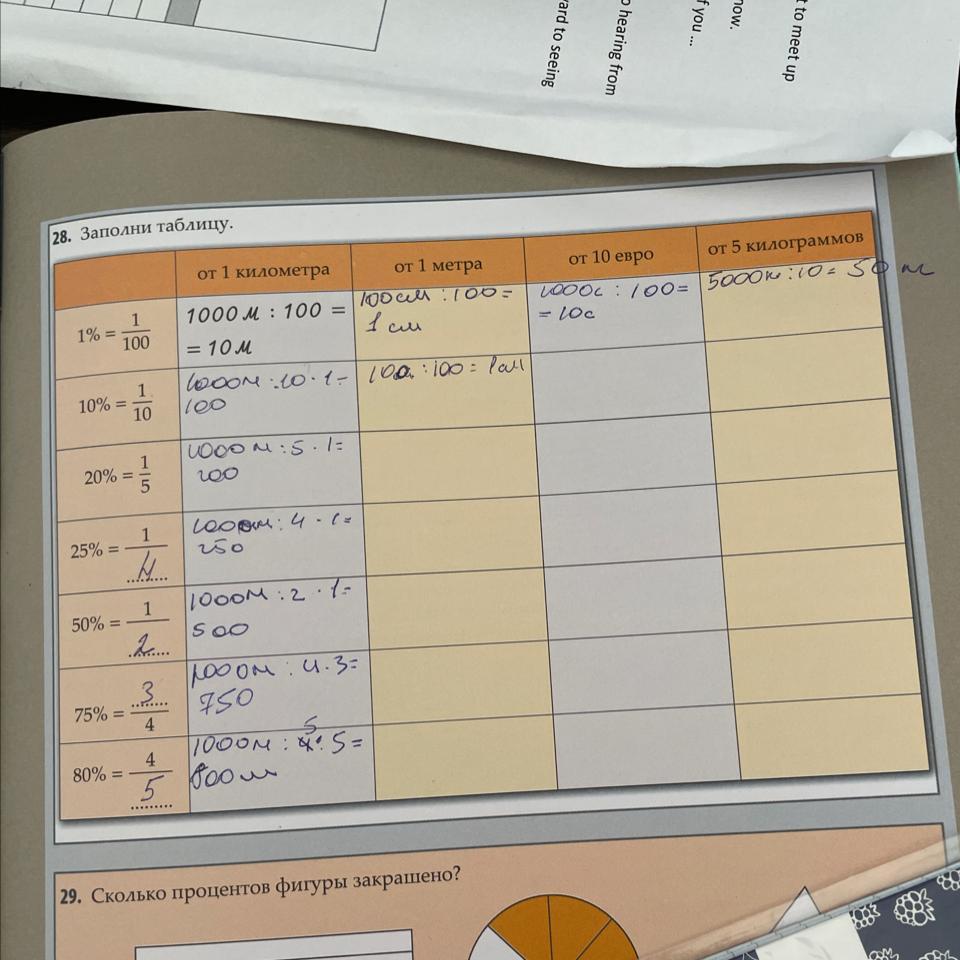 t to meet up
now.
f you ...
o hearing from
ard to seeing
28. Заполни таблицу.
от 1 километра от 1 метра от 10 евро от 5 килограммов
1% = 1/100
1000 м : 100 =
= 10 м
100 см : 100 =
1 см
1000 с : 100 =
= 10 с
5000 : 10 = 50
10% = 1/10
1000 м : 10 · 1 =
100
10 : 100 = 1 см
20% = 1/5
1000 м : 5 · 1 =
200
25% = 1/4
1000 м : 4 · 1 =
250
50% = 1/2
1000 м : 2 · 1 =
500
75% = 3/4
1000 м : 4 · 3 =
750
80% = 4/5
1000 м : 5 · 5 =
800 м
29. Сколько процентов фигуры закрашено?